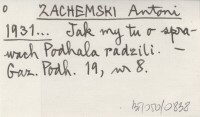 0 ZACHEMSKI Antoni
1931... Jak my tu o spra-
wach Podhala radzili. -
Gaz. Podh. 19, nr 8.